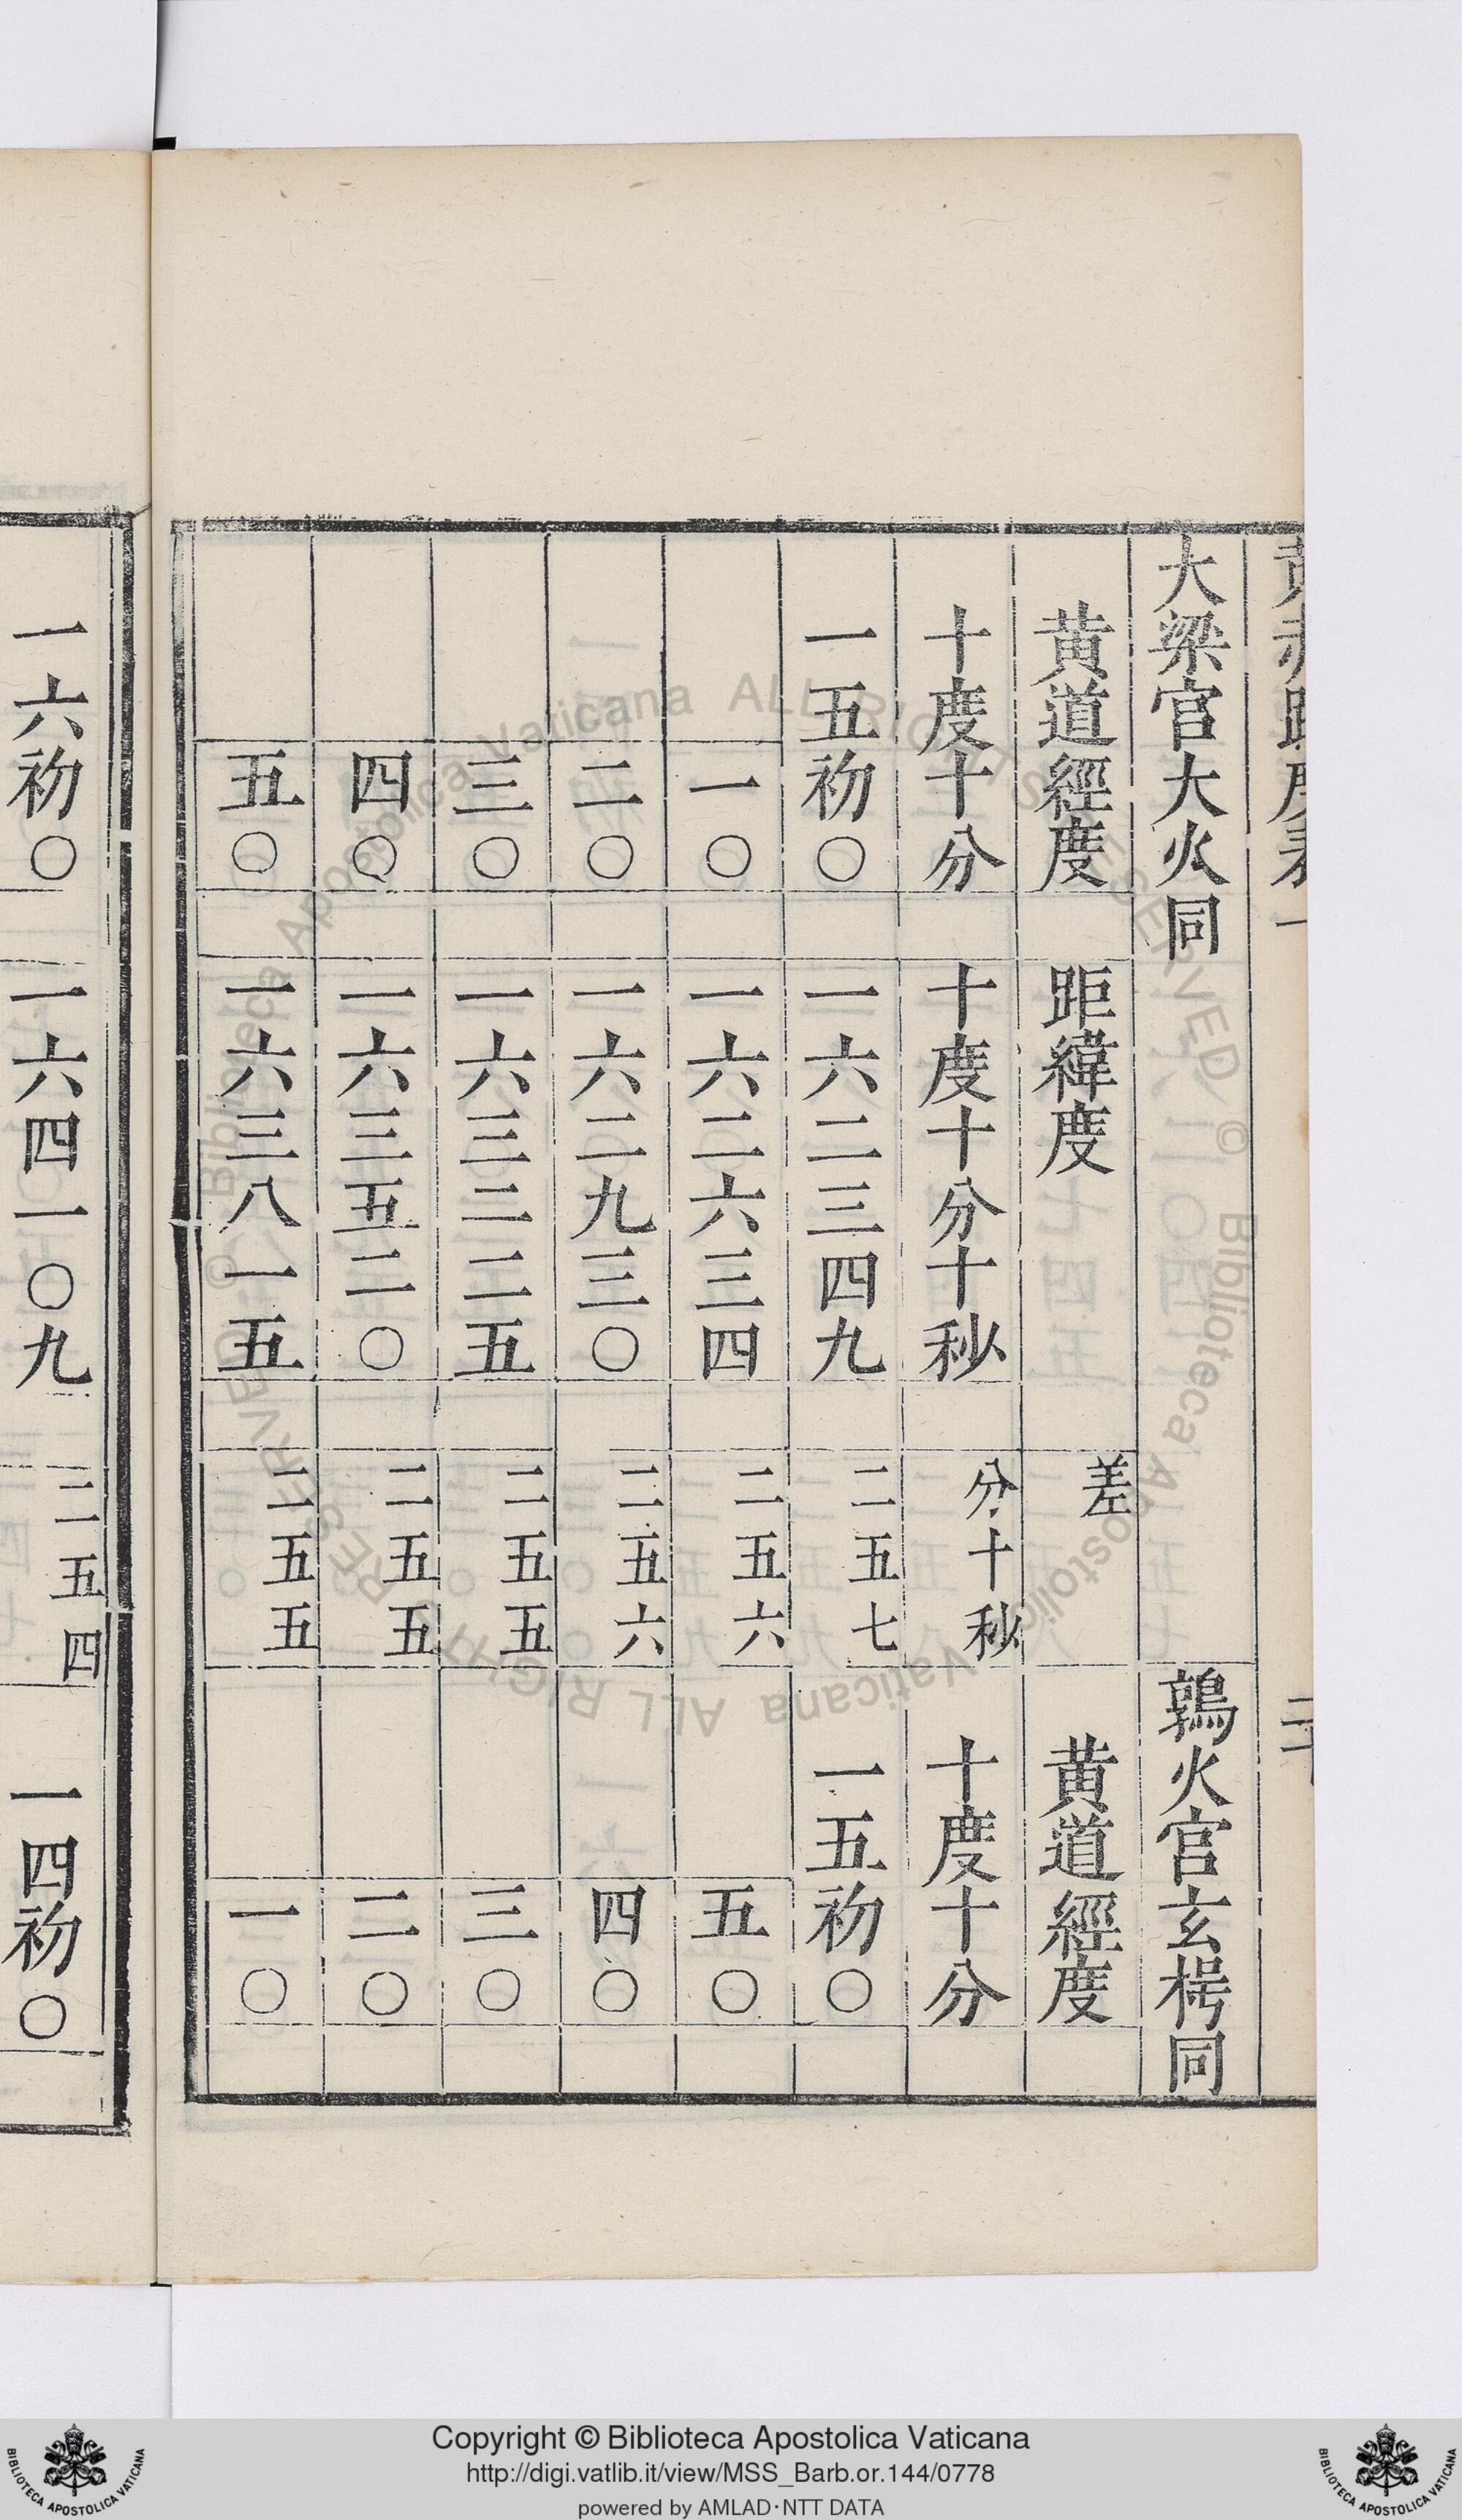 大梁官大火同 鶉火官玄枵同
黃道經度 距緯度 差 黃道經度
十度十分 十度十分十秒 分十秒 十度十分
一五初〇 一六二三四九 二五七 一五初〇
一〇 一六二六三四 二五六 五〇
二〇 一六二九三〇 二五六 四〇
三〇 一六三二二五 二五五 三〇
四〇 一六三五二〇 二五五 二〇
五〇 一六三八一五 二五五 一〇
一六初〇 一六四一〇九 二五四 一四初〇
Copyright © Biblioteca Apostolica Vaticana
http://digi.vatlib.it/view/MSS_Barb.or.144/0778
powered by AMLAD·NTT DATA
BIBLIOTECA APOSTOLICA VATICANA
BIBLIOTECA APOSTOLICA VATICANA